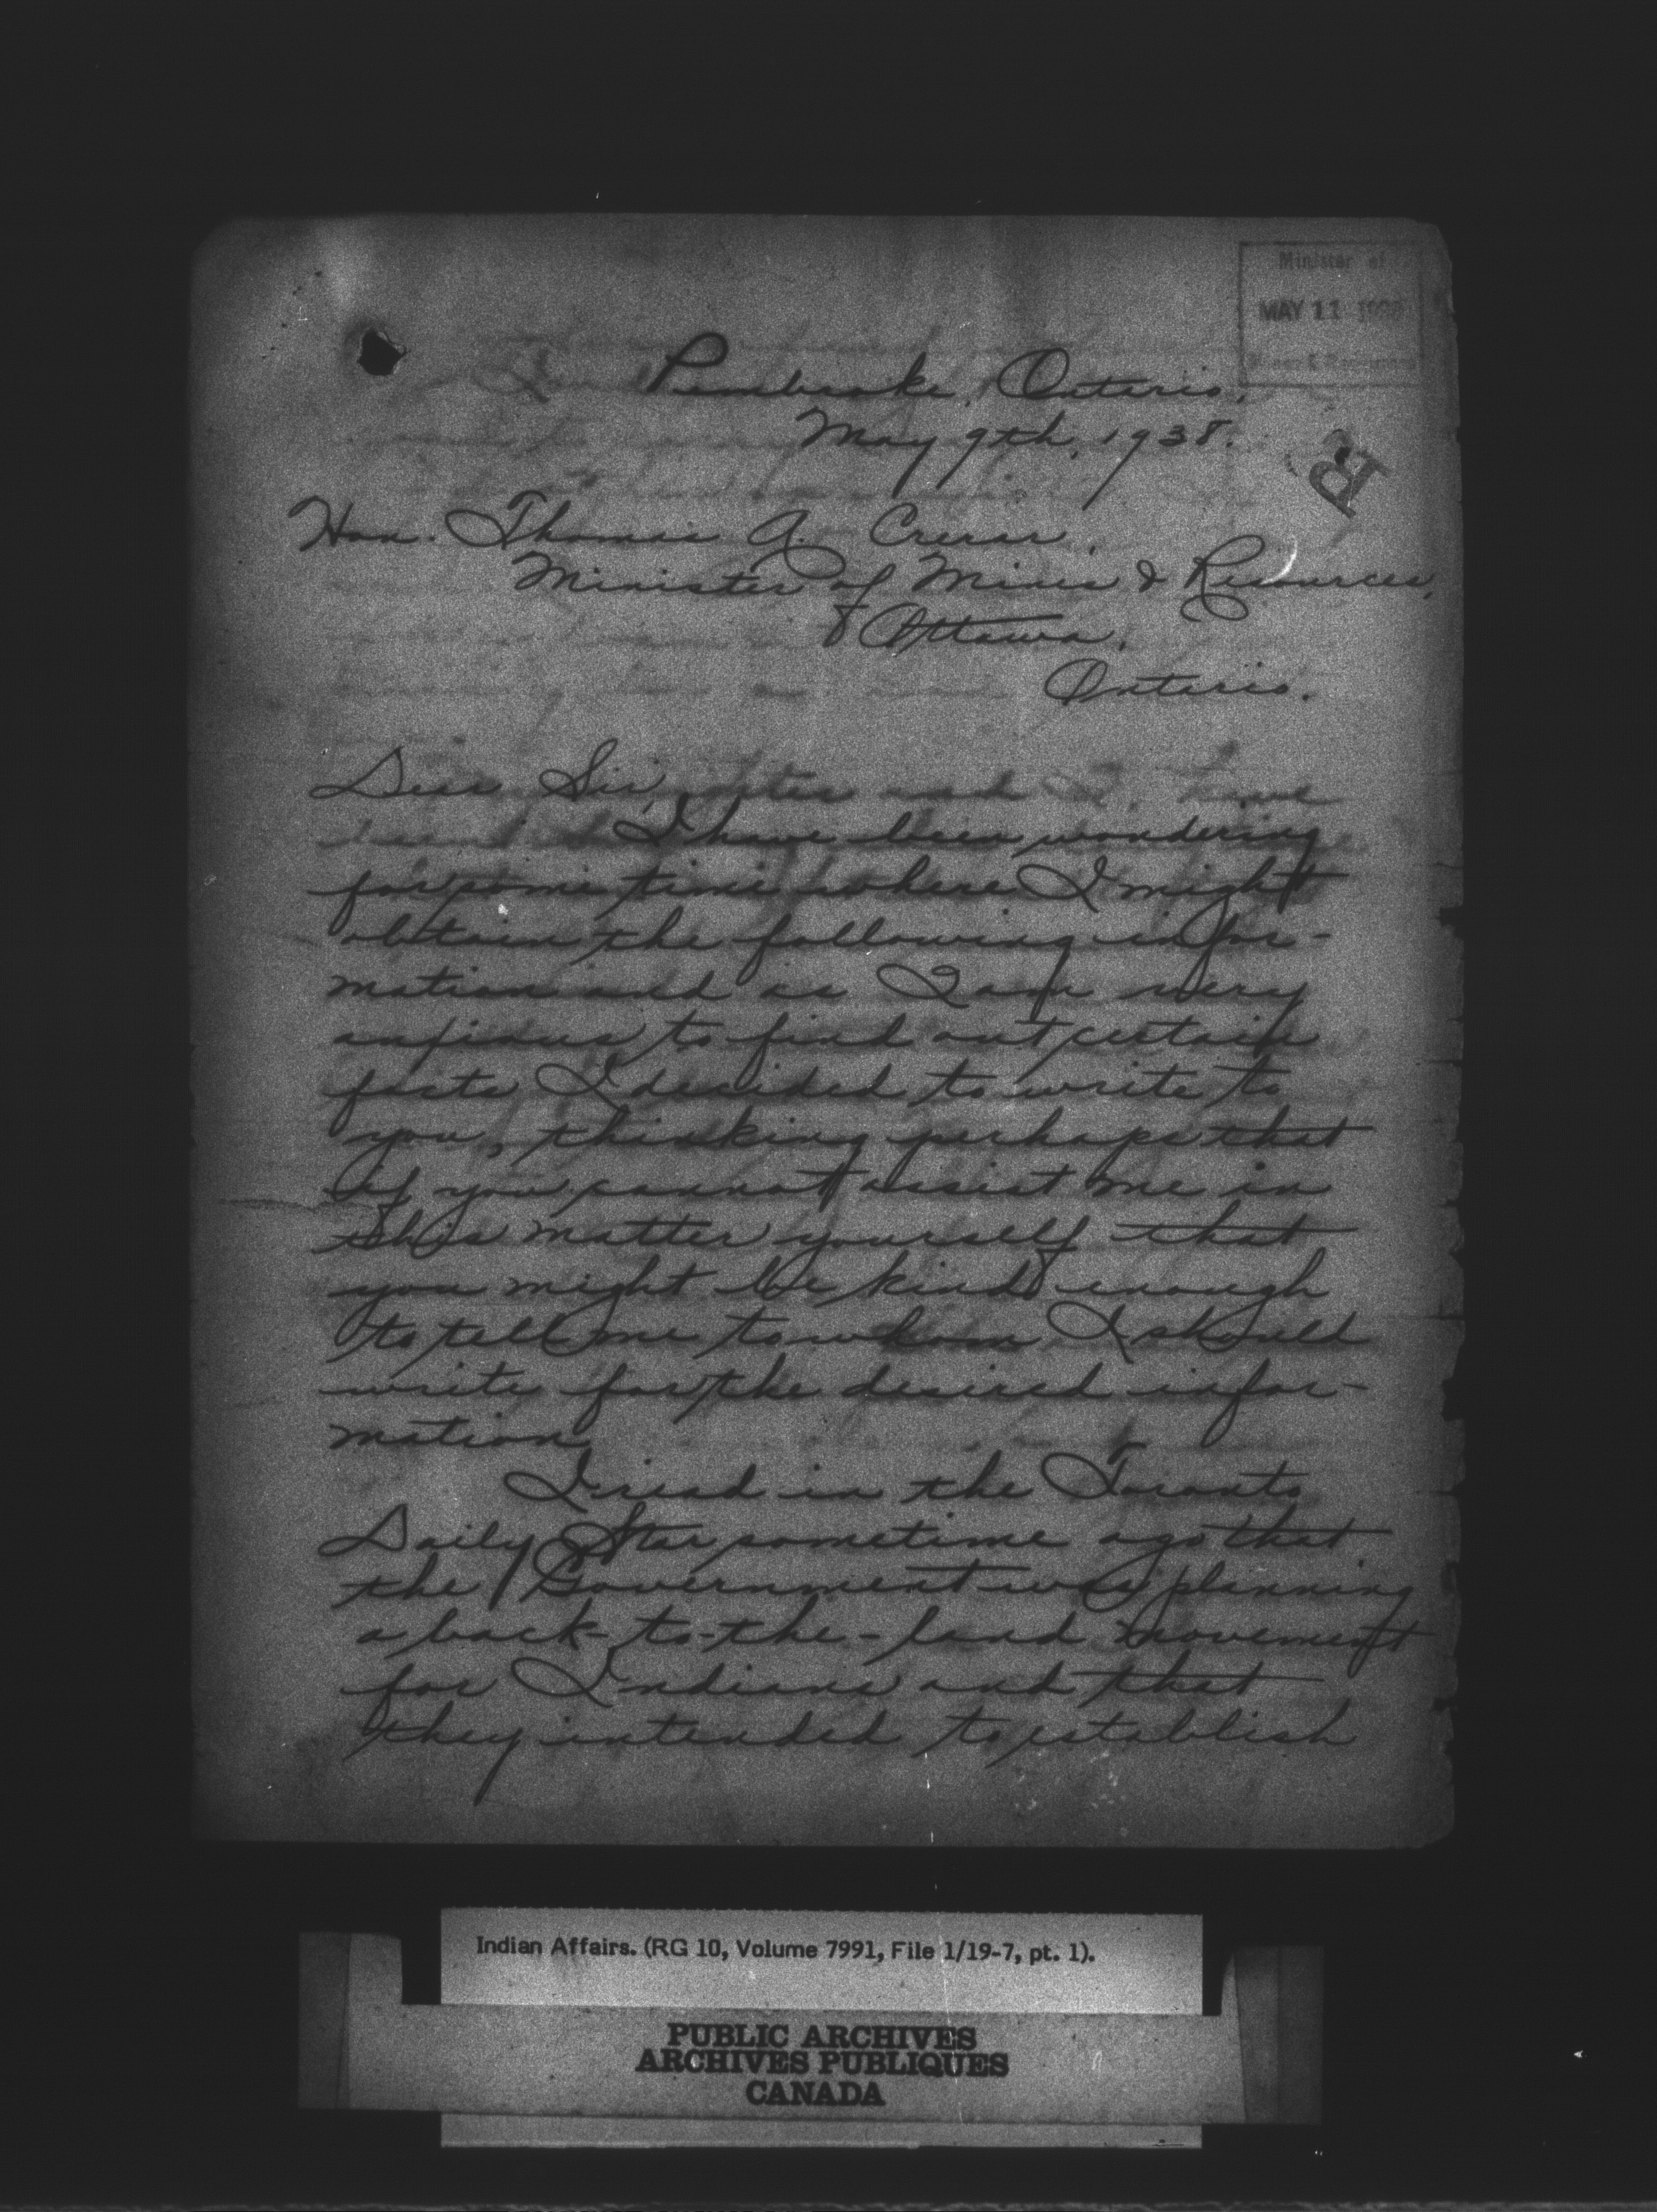 Minister of
MAY 11 1938
Mines & Resources
Pembroke, Ontario,
May 9th, 1938.
R
Hon. Thomas A. Crerar,
Minister of Mines & Resources,
Ottawa,
Ontario.
Dear Sir,
I have been wondering
for some time where I might
obtain the following infor-
mation and as I am very
anxious to find out certain
facts I decided to write to
you, thinking perhaps that
if you cannot assist me in
this matter yourself that
you might be kind enough
to tell me to whom I should
write for the desired infor-
mation.
I read in the Toronto
Daily Star sometime ago that
the Government was planning
a back-to-the-land movement
for Indians and that
they intended to establish
Indian Affairs. (RG 10, Volume 7991, File 1/19-7, pt. 1).
PUBLIC ARCHIVES
ARCHIVES PUBLIQUES
CANADA